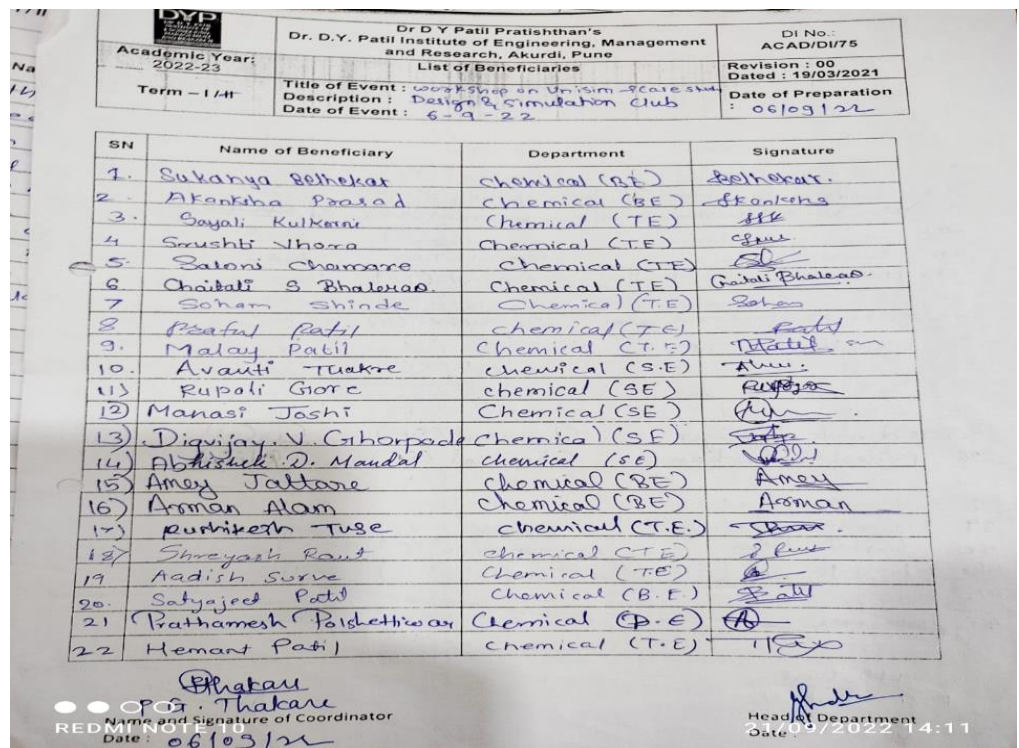 DYP
Dr D Y Patil Pratishthan's
Dr. D.Y. Patil Institute of Engineering, Management
and Research, Akurdi, Pune
DI No.:
ACAD/DI/75
Academic Year:
2022-23
List of Beneficiaries
Revision : 00
Dated : 19/03/2021
Term – I / II
Title of Event : workshop on Unisim
Description : Design & Simulation Club
Date of Event : 6-9-22
Date of Preparation
: 06/09/22
SN Name of Beneficiary Department Signature
1. Sukanya Belhekar Chemical (BE) Belhekar.
2. Akanksha Prasad Chemical (BE)
3. Sayali Kulkarni Chemical (TE)
4 Srushti Vhora Chemical (T.E)
5. Saloni Chamare Chemical (TE)
6 Chaitali S Bhalerao. Chemical (TE) Chaitali Bhalerao.
7 Soham Shinde Chemical (T.E) Soham
8 Praful Patil Chemical (T.E) Patil
9. Malay Patil Chemical (T.E)
10. Avanti Thakre chemical (S.E)
11) Rupali Gore chemical (SE)
12) Manasi Joshi Chemical (SE)
13) Digvijay. V. Ghorpade Chemical (SE)
14) Abhishek D. Mandal chemical (SE)
15) Amey Jattare Chemical (BE) Amey
16) Arman Alam Chemical (BE) Arman
17) Rushikesh Tuse Chemical (T.E.)
18) Shreyash Raut chemical (TE)
19 Aadish Surve Chemical (T.E)
20. Satyajeet Patil Chemical (B.E.) Patil
21 Prathamesh Polshettiwar Chemical (B.E)
22 Hemant Patil Chemical (T.E)
Bthakare
P.G. Thakare
Name and Signature of Coordinator
Head of Department
REDMI NOTE 10
21/09/2022 14:11
Date : 06/09/22
Date :